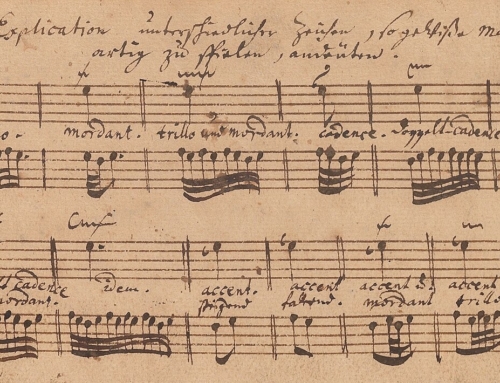 Explication unterschiedlicher Zeichen, so gewiße ma
artig zu spielen, andeüten.
o. mordant. trillo und mordant. cadence. Doppelt-cadence
t cadence idem. accent. accent accent ü. accent
mordant. steigend fallend. mordant trill